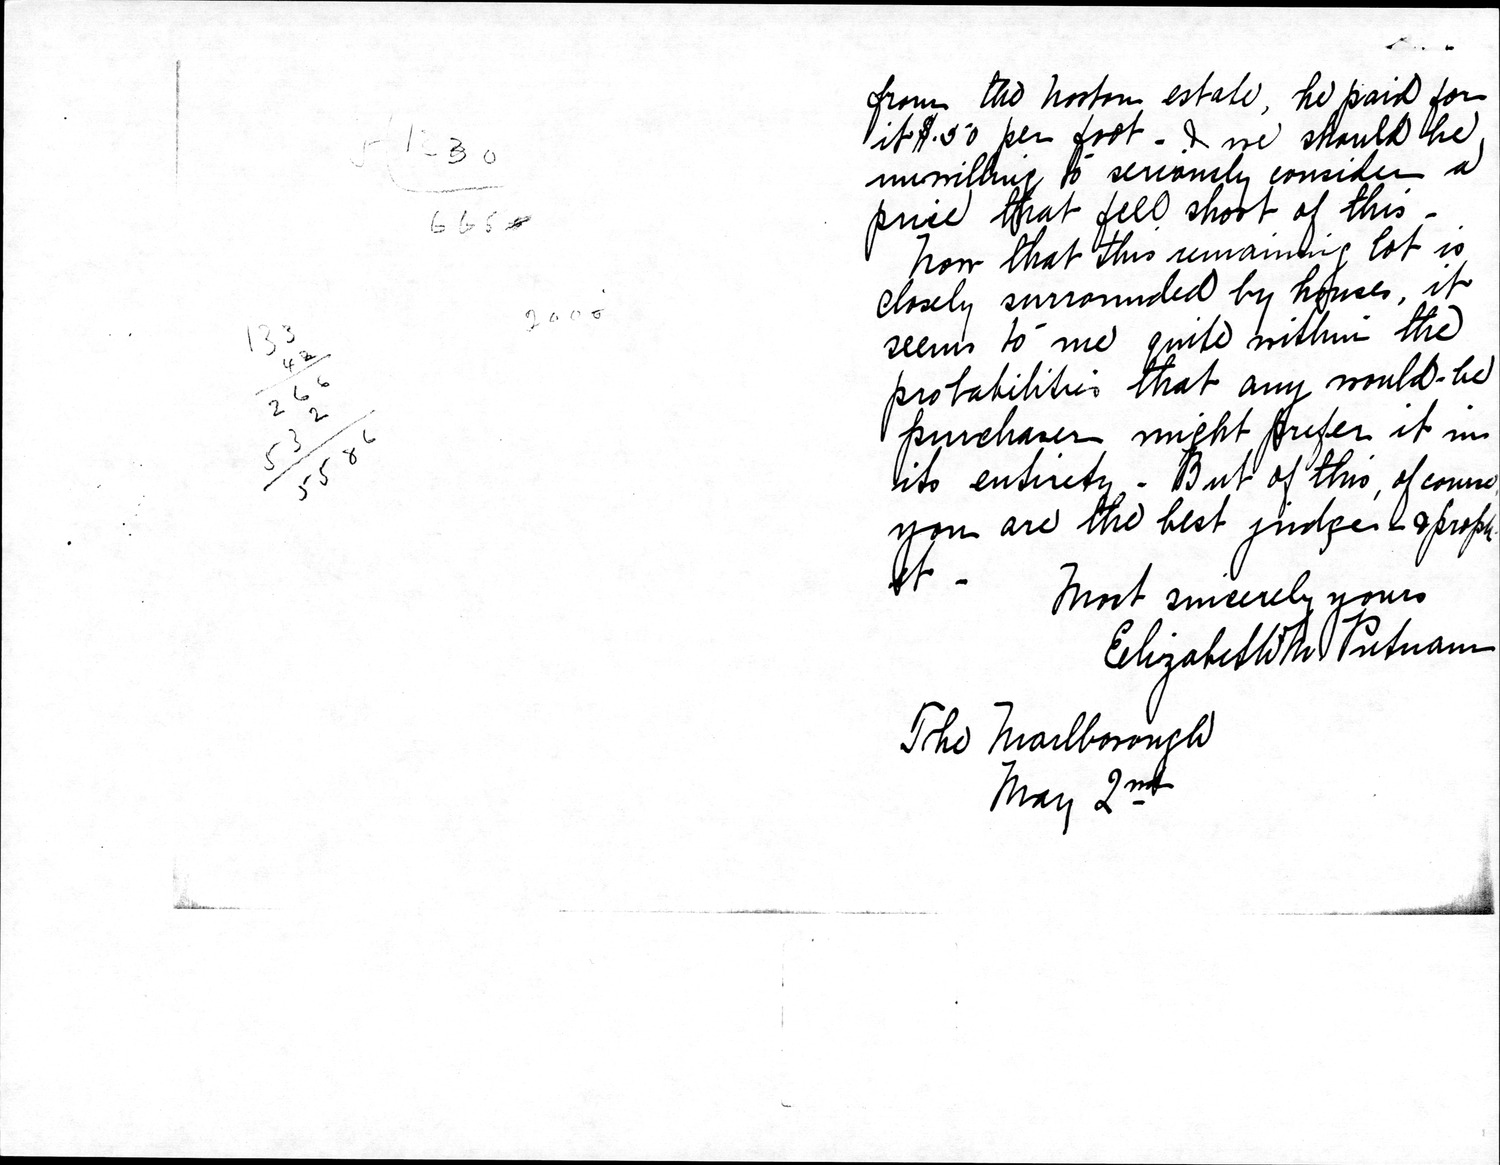 5 1230
6650
2000
133
42
266
532
5586
from the Norton estate, he paid for
it $.50 per foot - & we should be
unwilling to seriously consider a
price that fell short of this -
Now that this remaining lot is
closely surrounded by houses, it
seems to me quite within the
probabilities that any would-be
purchaser might prefer it in
its entirety - But of this, of course,
you are the best judge - & proph-
et -
Most sincerely yours
Elizabeth Putnam
The Marlborough
May 2nd